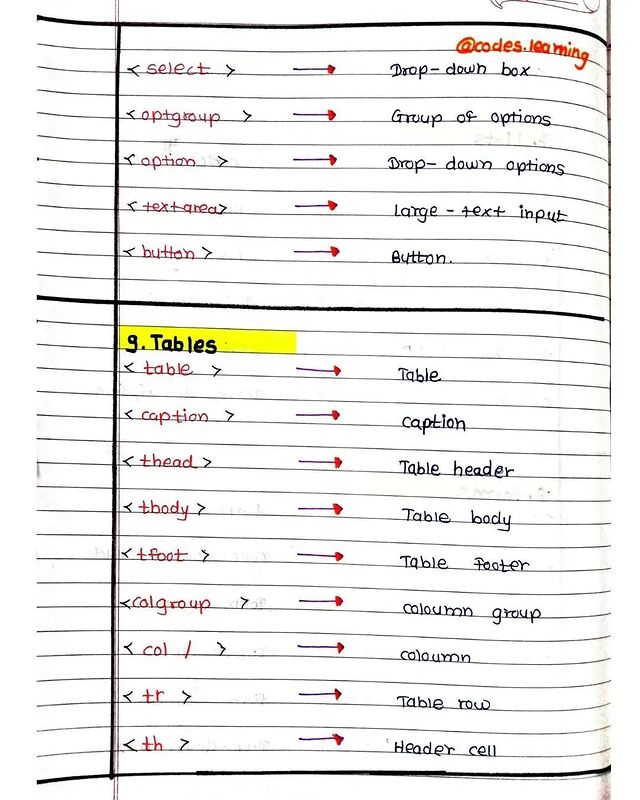 @codes.learning
< select > → Drop-down box
< optgroup > → Group of options
< option > → Drop-down options
< textarea> → Large-text input
< button > → Button.
9. Tables
< table > → Table
< caption > → caption
< thead > → Table header
< tbody > → Table body
< tfoot > → Table footer
<colgroup > → coloumn group
< col / > → coloumn
< tr > → Table row
< th > → Header cell